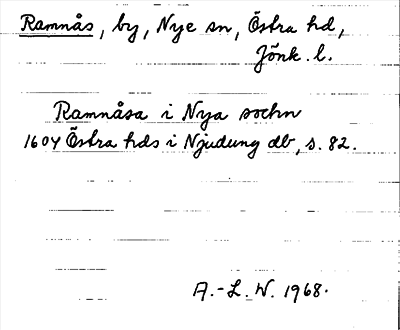 Ramnås, by, Nye sn, Östra hd,
Jönk. l.
Ramnåsa i Nya sochn
1604 Östra hds i Njudung db, s. 82.
A.-L. W. 1968.